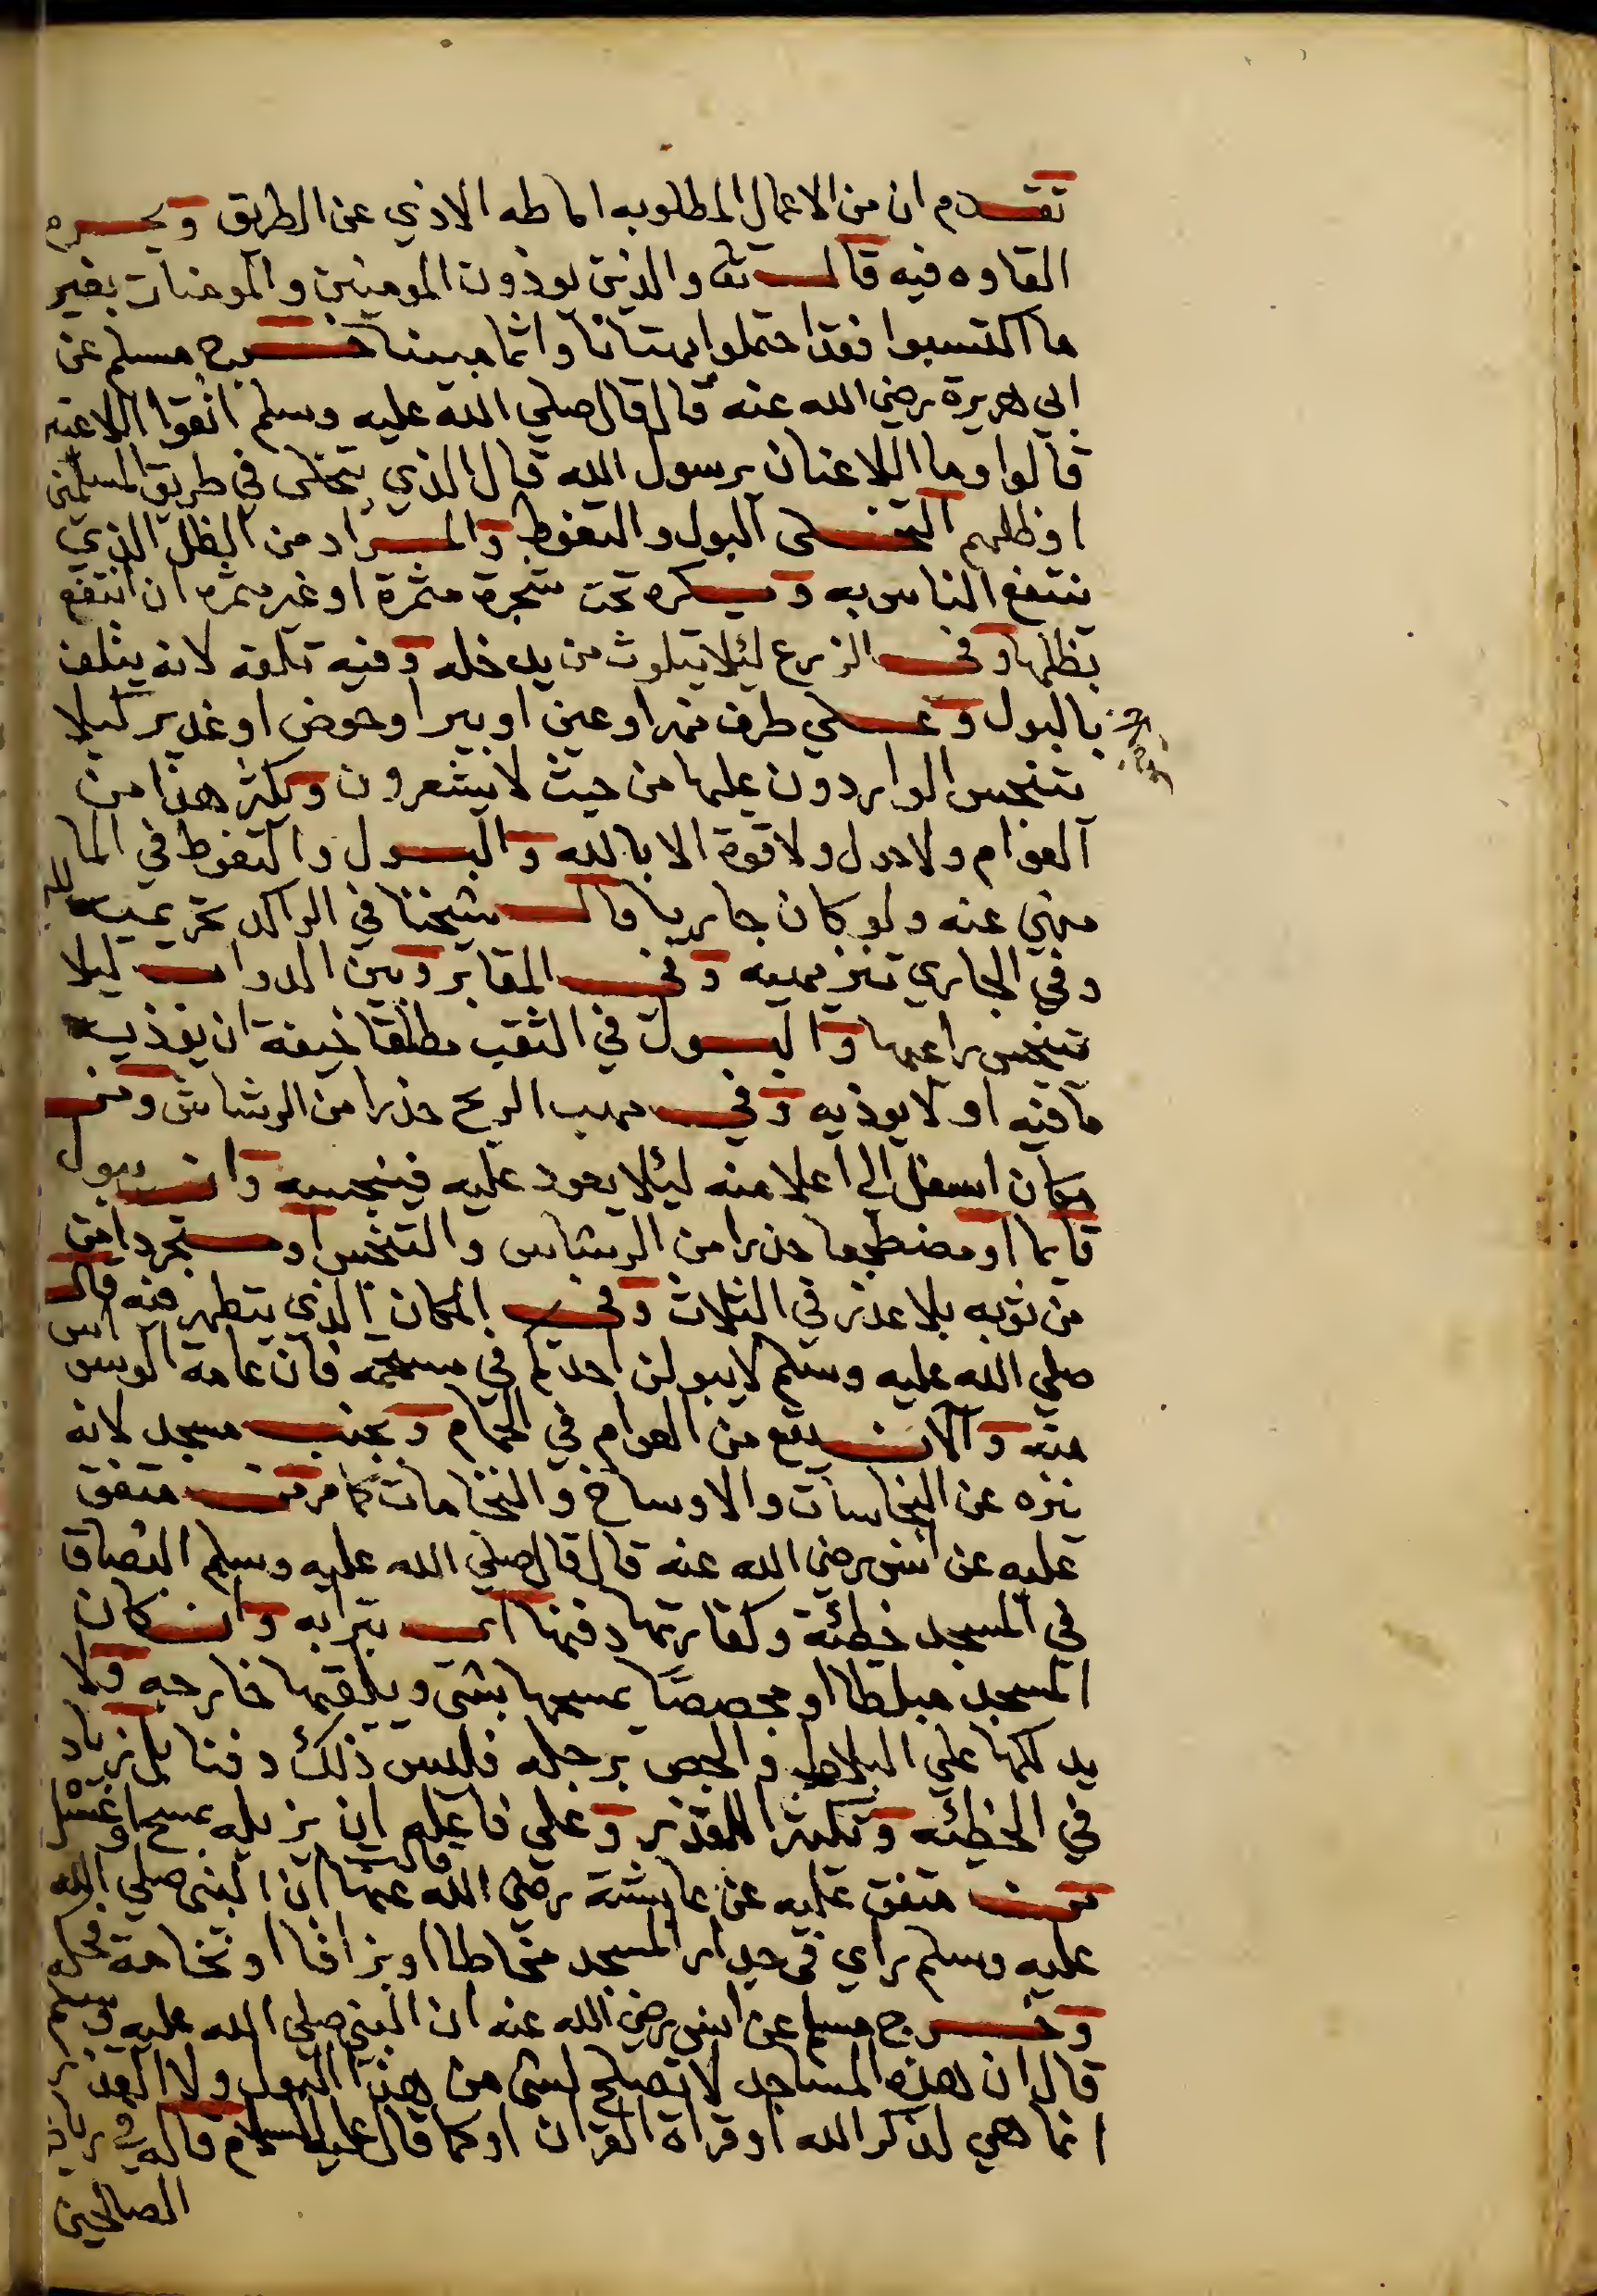 تقدم ان من الاعمال المطلوبه اماطه الاذي عن الطريق ويحرم
القاوه فيه قال تعا والذين يوذون المومنين والمومنات بغير
ما اكتسبوا فقد احتملوا بهتانا واثما مبينا خرج مسلم عن
ابي هريرة رضي الله عنه قال قال صلي الله عليه وسلم اتقوا اللاعنين
قالوا وما اللاعنان يرسول الله قال الذي يتخلى في طريق المسلمين
او ظلهم التخلى البول والتغوط والمراد من الظل الذي
ينتفع الناس به ويكره تحت شجرة مثمرة او غير مثمره ان انتفع
بظلها وفي الزرع ليلا يتلوث من يدخله وفيه تلفه لانه يتلف
بالبول وعلي طرف نهر او عين او بير او حوض او غدير كيلا
تنجس الواردون عليها من حيث لا يشعرون وكثر هذا من
العوام ولا حول ولا قوة الا بالله والبول والتغوط في الما
منهي عنه ولو كان جاريا قال شيخنا في الراكد تحريميه
وفي الجاري تنزيهيه وفي المقابر وبين الدواب ليلا
تنجس راعيها والبول في الثقب مطلقا خيفة ان يوذيه
ما فيه او لا يوذيه وفي مهب الريح حذرا من الرشاش ومن
مكان اسفل الي اعلا منه ليلا يعود عليه فينجسه وان يبول
قايما او مضطجعا حذرا من الرشاش والتنجس او متجردا من
من ثوبه بلا عذر في الثلاث وفي المكان الذي يتطهر فيه قال
صلي الله عليه وسلم لا يبولن احدكم في مستحمه فان عامة الوسواس
منه والان يقع من العوام في الحمام وبجنب مسجد لانه
ينزه عن النجاسات والاوساخ والنخامات كما مر متفق
عليه عن انس رضي الله عنه قال قال صلي الله عليه وسلم البصاق
في المسجد خطئة وكفارتها دفنها اي بترابه وان كان
المسجد مبلطا او مجصصًا يمسحها بشى ويلقيها خارجه ولا
يدلكها علي البلاط والجص برجله فليس ذلك دفنا بل زياد
في الخطئه وتكثر القذر وعلي فاعله ان يزيله بمسح او غسل
متفق عليه عن عايشة رضي الله عنها قالت ان النبي صلي الله
عليه وسلم راي في جدار المسجد مخاطا او بزاقا او نخامة فحكه
وخرج مسلم عن انس رضي الله عنه ان النبي صلي الله عليه وسلم
قال ان هذه المساجد لا تصلح لشى من هذا البول ولا القذر
انما هي لذكر الله او قراة القران او كما قال عليه السلام قاله في رياض
الصالحين